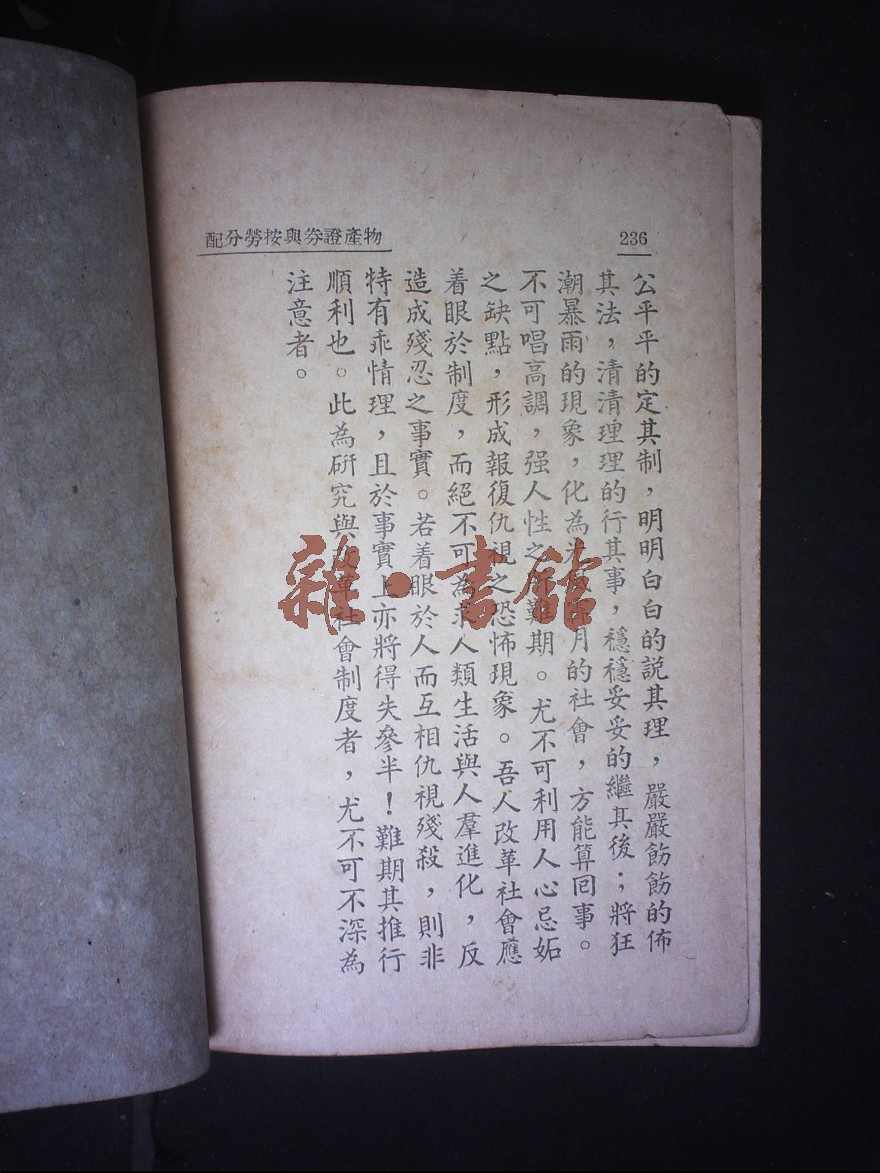 236
物產證券與按勞分配
公平平的定其制，明明白白的說其理，嚴嚴飭飭的佈
其法，清清理理的行其事，穩穩妥妥的繼其後；將狂
潮暴雨的現象，化為月的社會，方能算回事。
不可唱高調，强人性之難期。尤不可利用人心忌妬
之缺點，形成報復仇視之恐怖現象。吾人改革社會應
着眼於制度，而絕不可為求人類生活與人羣進化，反
造成殘忍之事實。若着眼於人而互相仇視殘殺，則非
特有乖情理，且於事實上亦將得失參半！難期其推行
順利也。此為研究與改革社會制度者，尤不可不深為
注意者。
雜·書館